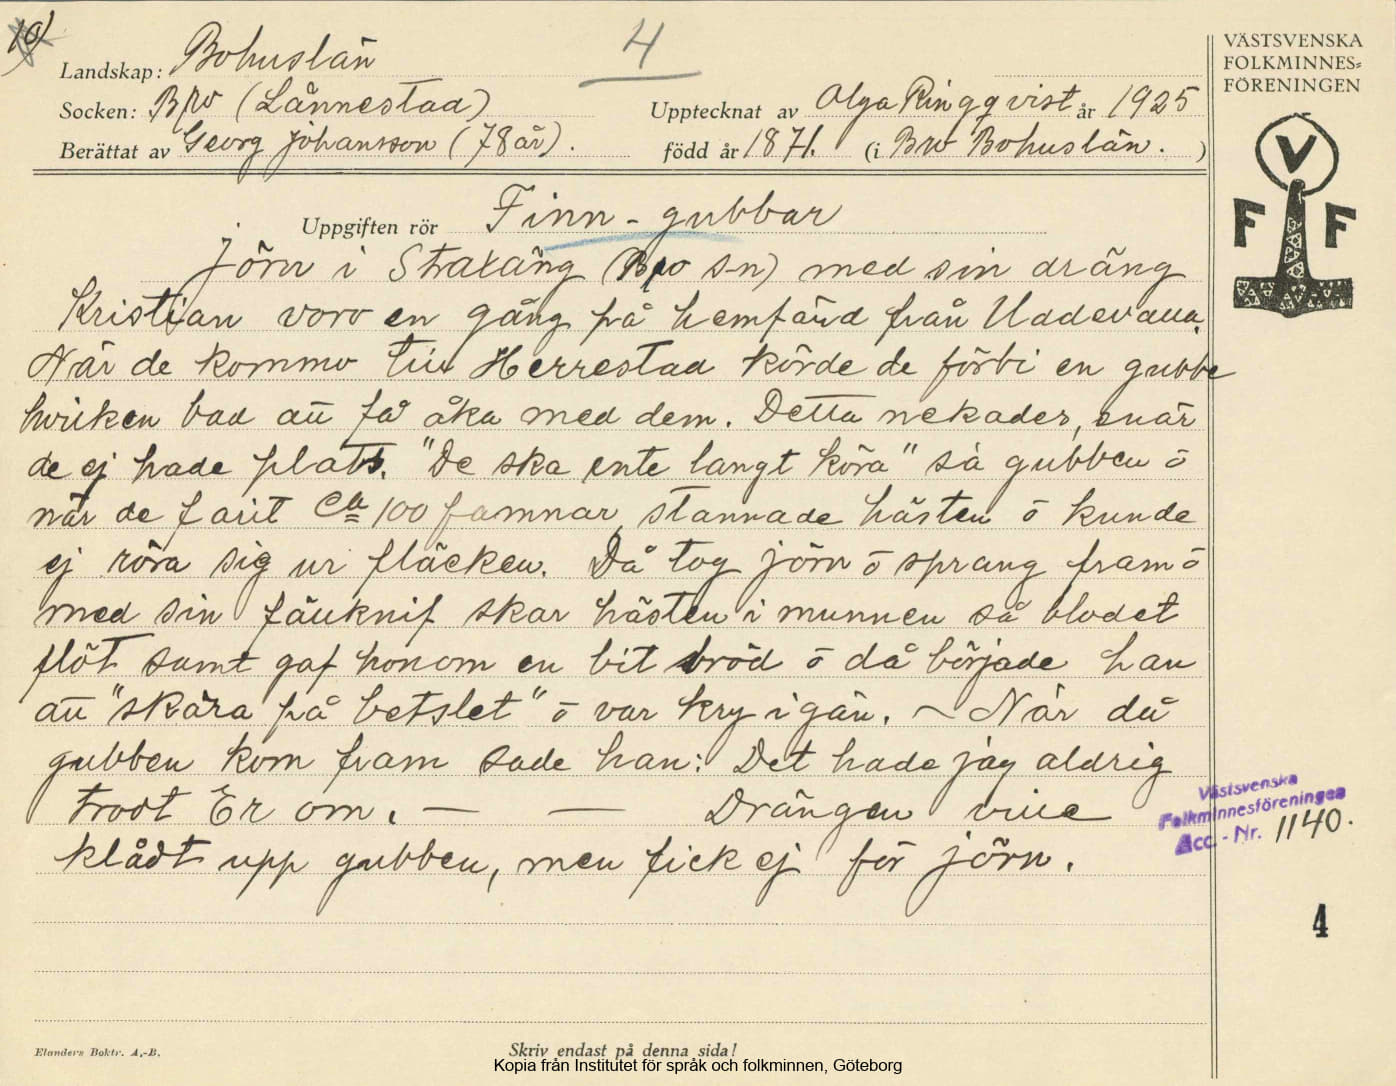 10)
4
VÄSTSVENSKA
FOLKMINNES=
FÖRENINGEN
V
F F
Landskap: Bohuslän
Socken: Bro (Lånnestad)
Upptecknat av Olga Ringqvist år 1925
Berättat av Georg Johansson (78 år).
född år 1871. (i Bro Bohuslän. )
Uppgiften rör Finn-gubbar
Jörn i Straxäng (Bro s-n) med sin dräng
Kristian voro en gång på hemfärd från Uddevalla.
När de kommo till Herrestad körde de förbi en gubbe
hvilken bad att få åka med dem. Detta nekades, enär
de ej hade plats. "De ska ente langt köra" sa gubben ō
när de farit ca 100 famnar, stannade hästen ō kunde
ej röra sig ur fläcken. Då tog Jörn ō sprang fram ō
med sin fällknif skar hästen i munnen så blodet
flöt samt gaf honom en bit bröd ō då började han
att "skära på betslet" ō var kry igän. ~ När då
gubben kom fram sade han: Det hade jag aldrig
trodt Er om. — — Drängen ville
klådt upp gubben, men fick ej för Jörn.
Västsvenska
Folkminnesföreningen
Acc. - Nr. 1140.
4
Elanders Boktr. A.-B.
Skriv endast på denna sida!
Kopia från Institutet för språk och folkminnen, Göteborg